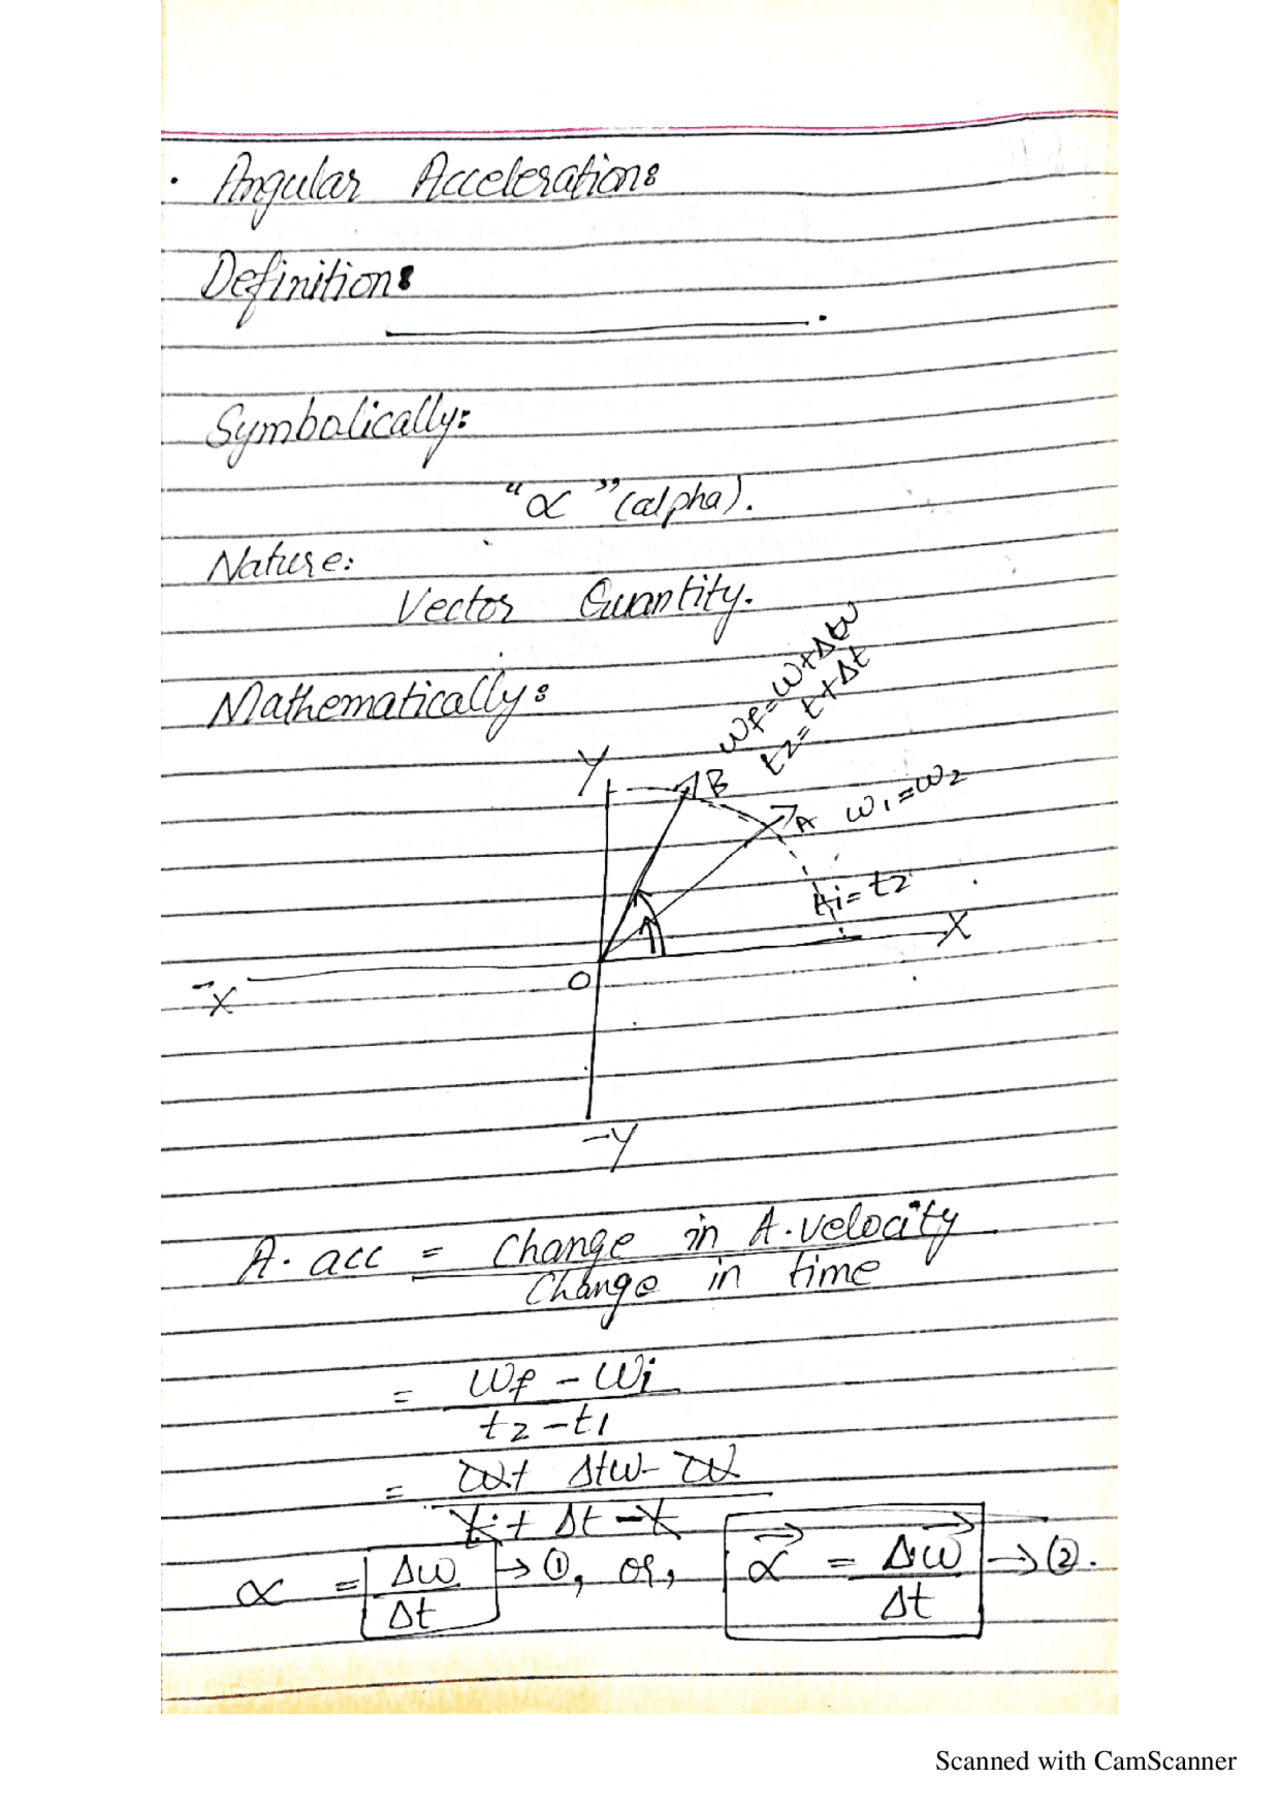 · Angular Acceleration:
Definition:
.
Symbolically:
"α" (alpha).
Nature:
Vector Quantity.
Mathematically:
ωf = ω + Δtω
t2 = t + Δt
Y
B
A
ωi = ω2
ti = t2
X
-X
O
-Y
A. acc = Change in A. velocity
Change in time
= ωf - ωi
t2 - t1
= ω + Δtω - ω
t + Δt - t
α = Δω → ①, or, α⃗ = Δω⃗ → ②.
Δt Δt
Scanned with CamScanner